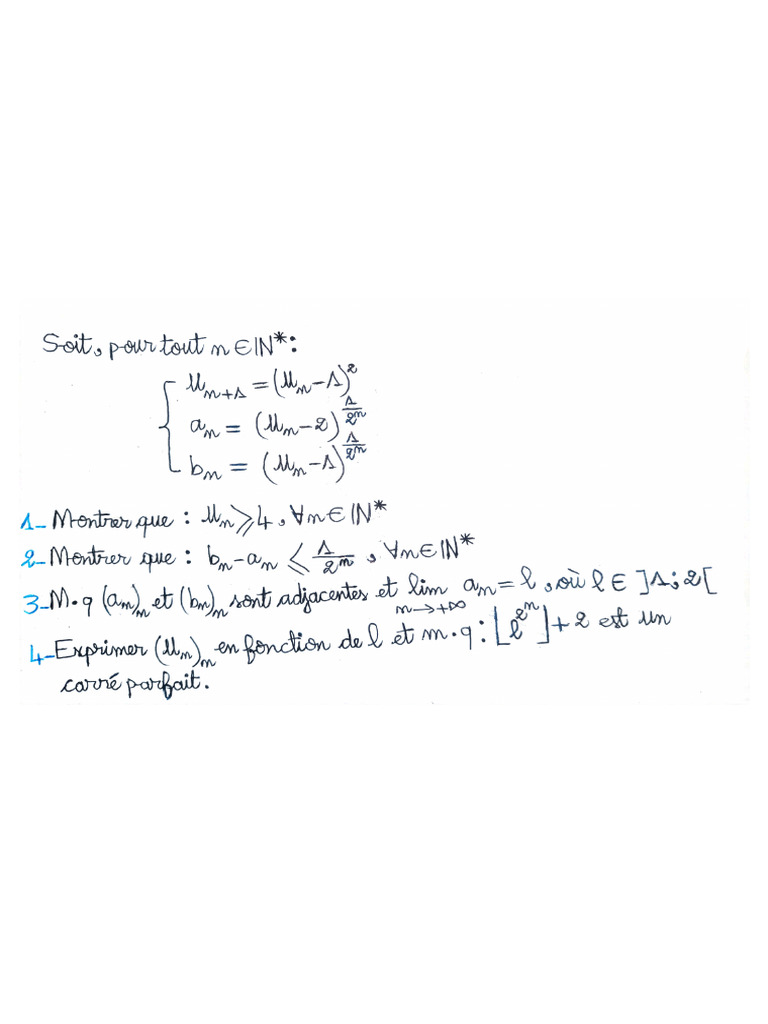 Soit, pour tout n ∈ IN* :
u_{n+1} = (u_n - 1)^2
a_n = (u_n - 2)^{1/2^n}
b_n = (u_n - 1)^{1/2^n}
1- Montrer que : u_n ⩾ 4, ∀n ∈ IN*
2- Montrer que : b_n - a_n ⩽ 1/2^n, ∀n ∈ IN*
3- M.q (a_n)_n et (b_n)_n sont adjacentes et lim_{n→+∞} a_n = l, où l ∈ ]1;2[
4- Exprimer (u_n)_n en fonction de l et m.q : ⌊l^{2^n}⌋ + 2 est un
carré parfait.